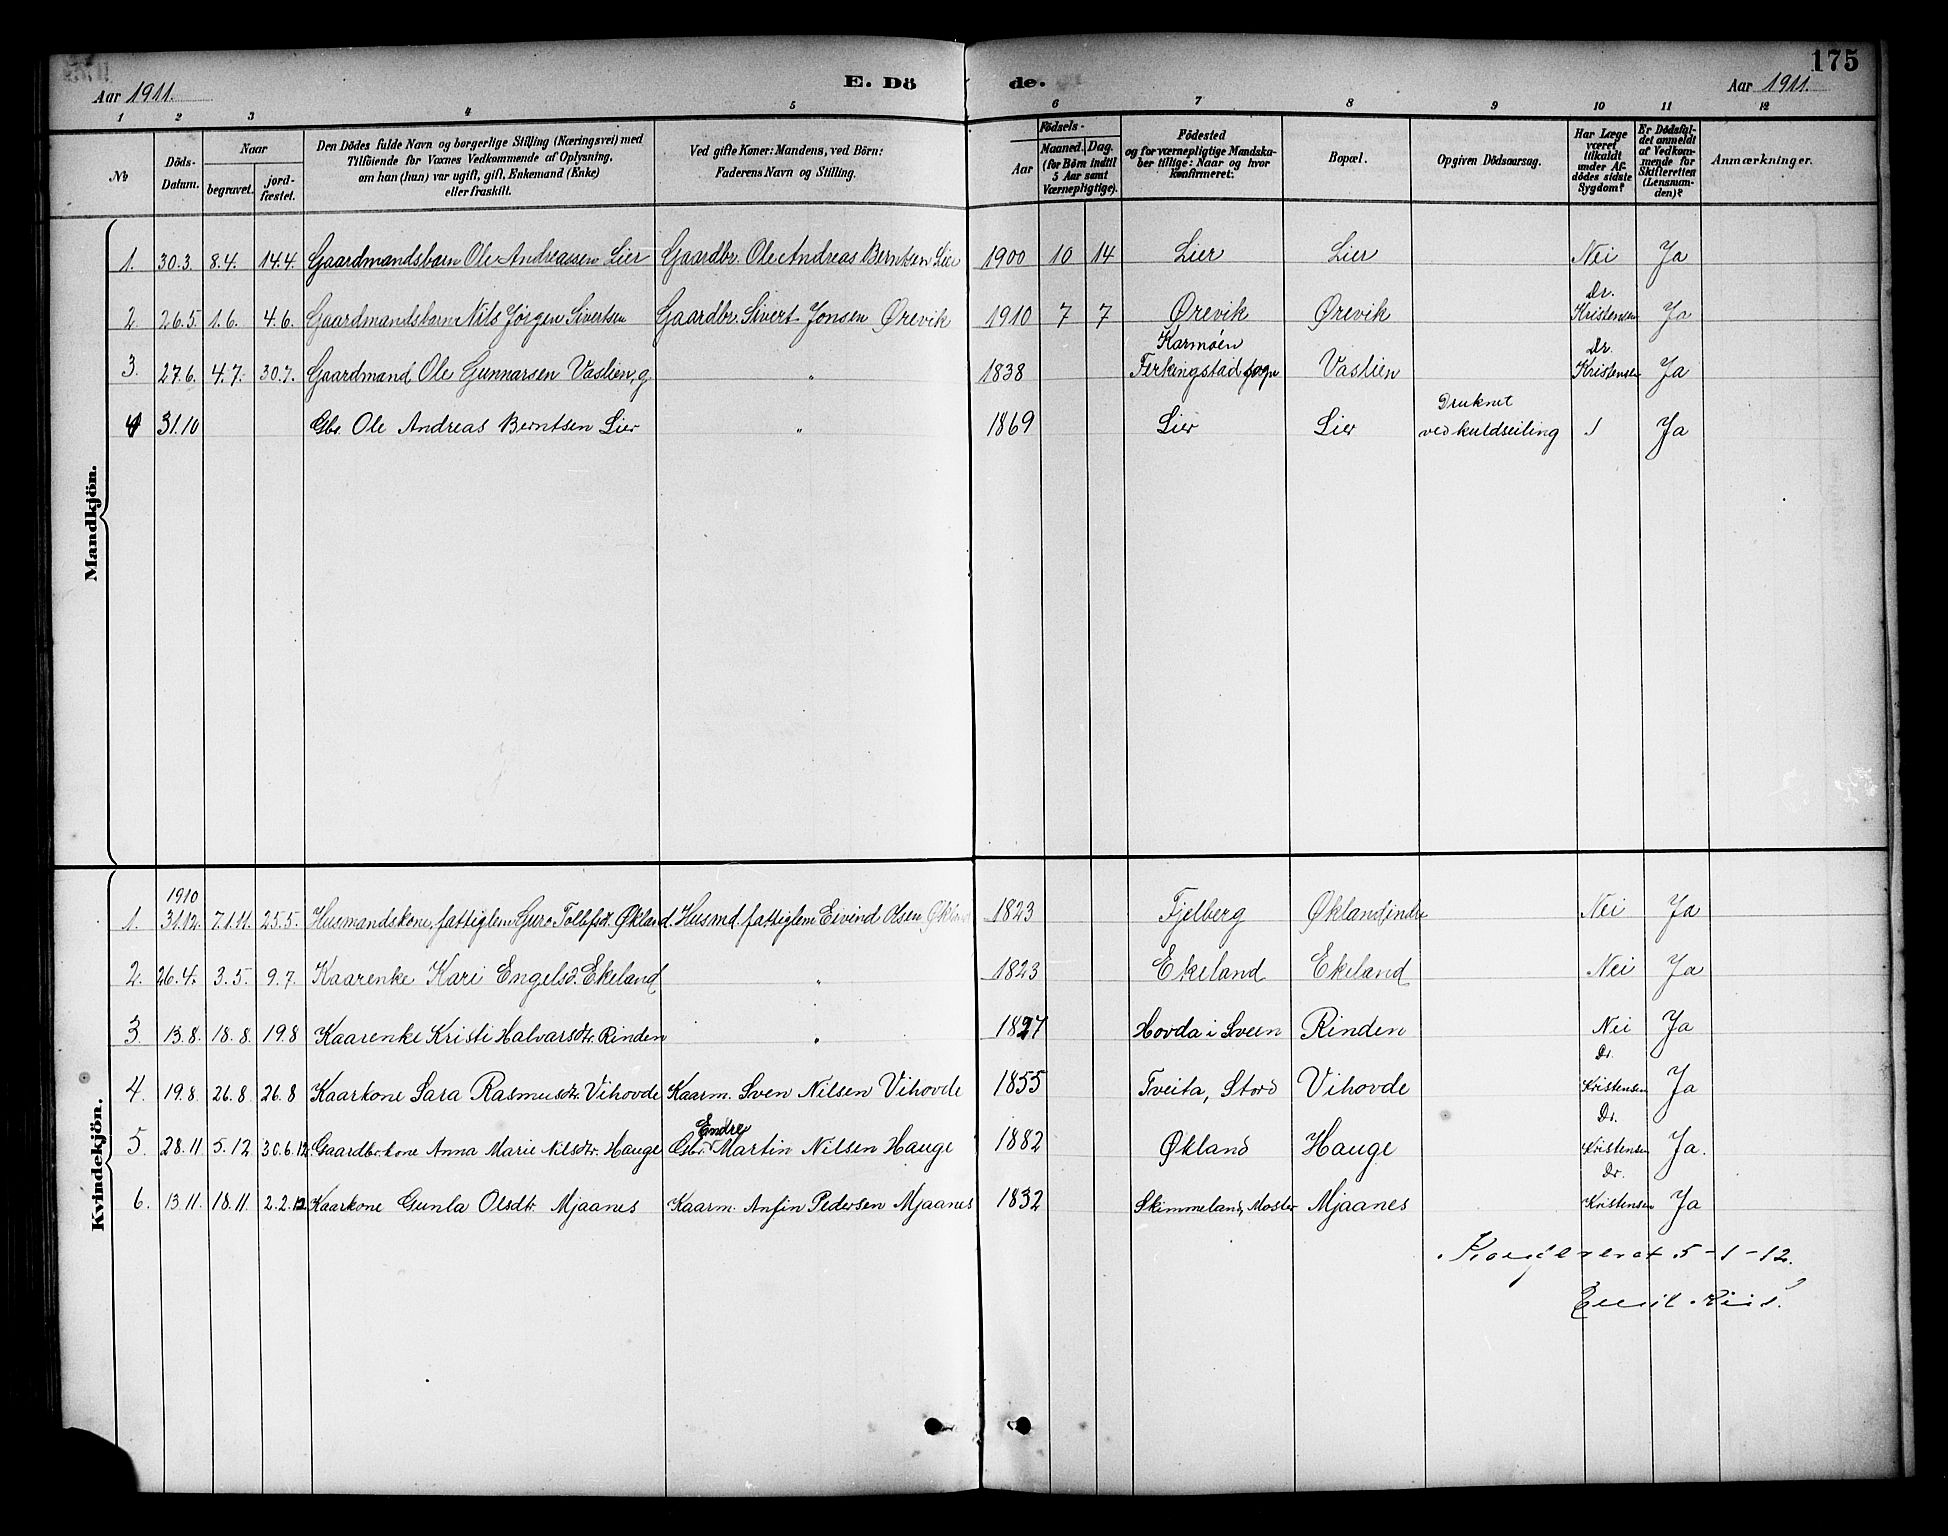 175
E. Dö de.
Aar 1911. Aar 1911.
1 2 3 4 5 6 7 8 9 10 11 12
No
Döds-Datum.
Naar
begravet.
jord-fæstet.
Den Dödes fulde Navn og borgerlige Stilling (Næringsvei) med
Tilföiende for Voxnes Vedkommende af Oplysning,
om han (hun) var ugift, gift, Enkemand (Enke)
eller fraskilt.
Ved gifte Koner: Mandens, ved Börn:
Faderens Navn og Stilling.
Födsels-
Aar
Maaned. Dag.
(for Börn indtil
5 Aar samt
Værnepligtige).
Födested
og for værnepligtige Mandska-
ber tillige: Naar og hvor
konfirmeret.
Bopæl.
Opgiven Dödsaarsag.
Har Læge
været
tilkaldt
under Af-
dödes sidste
Sygdom?
Er Dödsfal-
det anmeldt
af Vedkom-
mende for
Skifteretten
(Lensman-
den)?
Anmærkninger.
Mandkjön.
1. 30.3. 8.4. 14.4. Gaardmandsbarn Ole Andreassen Lier Gaardbr. Ole Andreas Berntsen Lier 1900 10 14 Lier Lier Nei Ja
2 26.5. 1.6. 4.6. Gaardmandsbarn Nils Jørgen Sivertsen Gaardbr. Sivert Jonsen Ørevik 1910 7 7 Ørevik Ørevik Dr. Kristensen Ja
3. 27.6. 4.7. 30.7. Gaardmand Ole Gunnarsen Vaslien, g. " 1838 Karmøen Ferkingstad sogn Vaslien Dr. Kristensen Ja
4 31.10 Gbr. Ole Andreas Berntsen Lier " 1869 Lier Lier Druknet ved kuldseiling Ja
Kvindekjön.
1. 1910 31.12. 7.1.11. 25.5. Husmandskone, fattiglem Guro Tollefsdt. Økland. Husmd. fattiglem Eivind Olsen Økland 1823 Fjelberg Økland indre Nei Ja
2. 26.4. 3.5. 9.7. Kaarenke Kari Engelsd. Ekeland " 1823 Ekeland Ekeland Nei Ja
3. 13.8. 18.8. 19.8 Kaarenke Kristi Halvarsdtr. Rinden " 1827 Hovda i Sveen Rinden Nei Ja
4. 19.8. 26.8 26.8 Kaarkone Sara Rasmusdtr. Vihovde Kaarm. Sven Nilsen Vihovde 1855 Tveita, Stord Vihovde Dr. Kristensen Ja
5. 28.11 5.12 30.6.12. Gaardbr.kone Anna Marie Nilsdtr. Hauge Gbr. Endre Martin Nilsen Hauge 1882 Økland Hauge Dr. Kristensen Ja.
6. 13.11. 18.11. 2.2.12 Kaarkone Gunla Olsdtr. Mjaanes Kaarm. Anfin Pedersen Mjaanes 1832 Skimmeland, Moster Mjaanes Dr. Kristensen Ja
Konfereret 5-1-12.
Emil Riis.